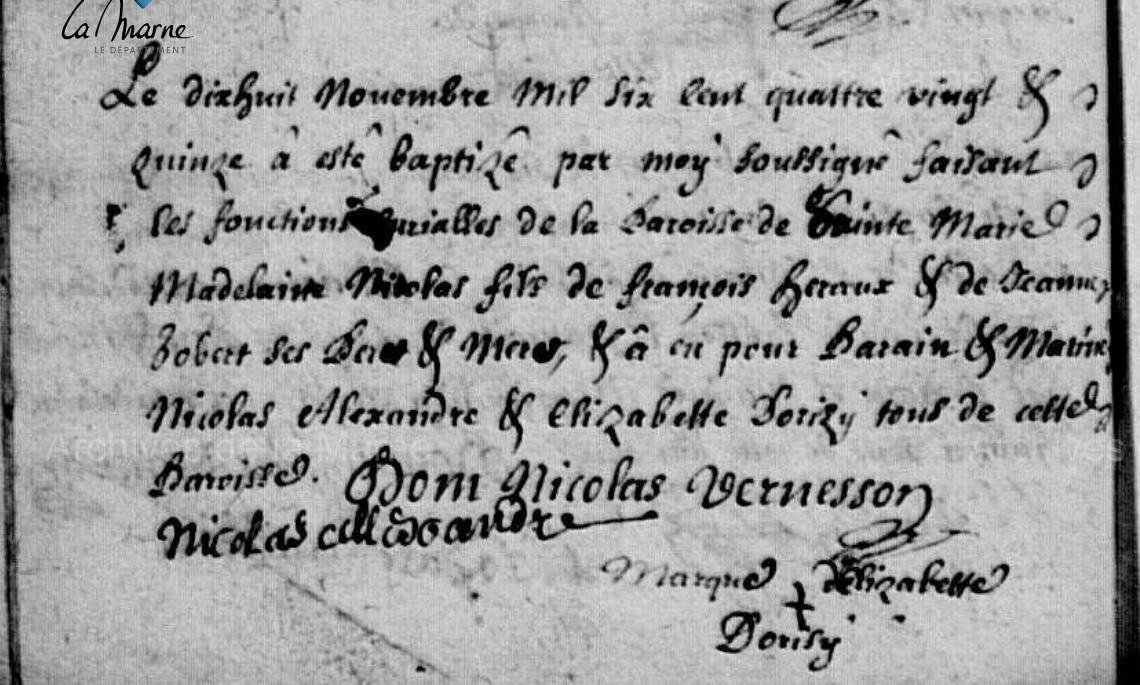 La Marne
LE DÉPARTEMENT
Le dixhuit Nouembre Mil Six Cent quattre vingt &
quinze â estê baptizê par moy soussignê faisant
les fonctions Curialles de la Paroisse de Sainte Marie
Madelaine Nicolas fils de françois heraux & de Jeanne
Jobert ses Pere & Mere, & â eu pour Parain & Marine
Nicolas Alexandre & Elizabette Dorizy tous de cette
Paroisse. Dom Nicolas Vernesson
Nicolas allexandre
Marque delizabette
Dorisy